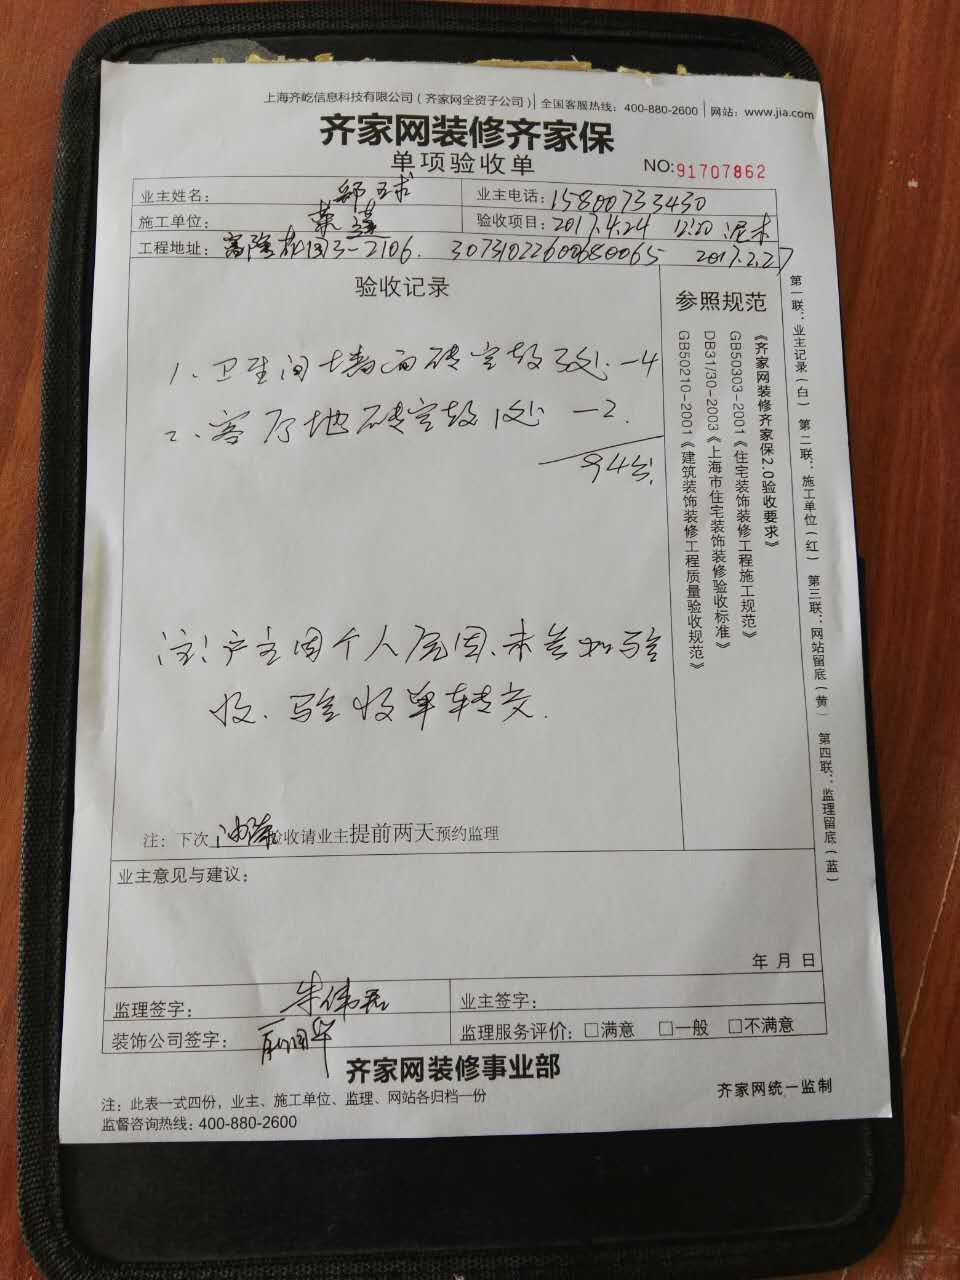 上海齐屹信息科技有限公司（齐家网全资子公司） | 全国客服热线：400-880-2600 | 网站：www.jia.com
齐家网装修齐家保
单项验收单
NO:91707862
业主姓名：
业主电话：15800733430
施工单位：
验收项目：2017.4.24 12:20 泥木
工程地址：富隆 3-2106. 3073102260680065 2017.2.27
验收记录
1、卫生间墙面砖空鼓3处 -4
2、客厅地砖空鼓1处 -2.
94分
注：户主因个人原因、未参加验
收、验收单转交.
注：下次油漆验收请业主提前两天预约监理
参照规范
《齐家网装修齐家保2.0验收要求》
GB50303-2001《住宅装饰装修工程施工规范》
DB31/30-2003《上海市住宅装饰装修验收标准》
GB50210-2001《建筑装饰装修工程质量验收规范》
第一联：业主记录（白） 第二联：施工单位（红） 第三联：网站留底（黄） 第四联：监理留底（蓝）
业主意见与建议：
年 月 日
监理签字：朱伟
业主签字：
装饰公司签字：
监理服务评价：□满意 □一般 □不满意
齐家网装修事业部
注：此表一式四份，业主、施工单位、监理、网站各归档一份
齐家网统一监制
监督咨询热线：400-880-2600